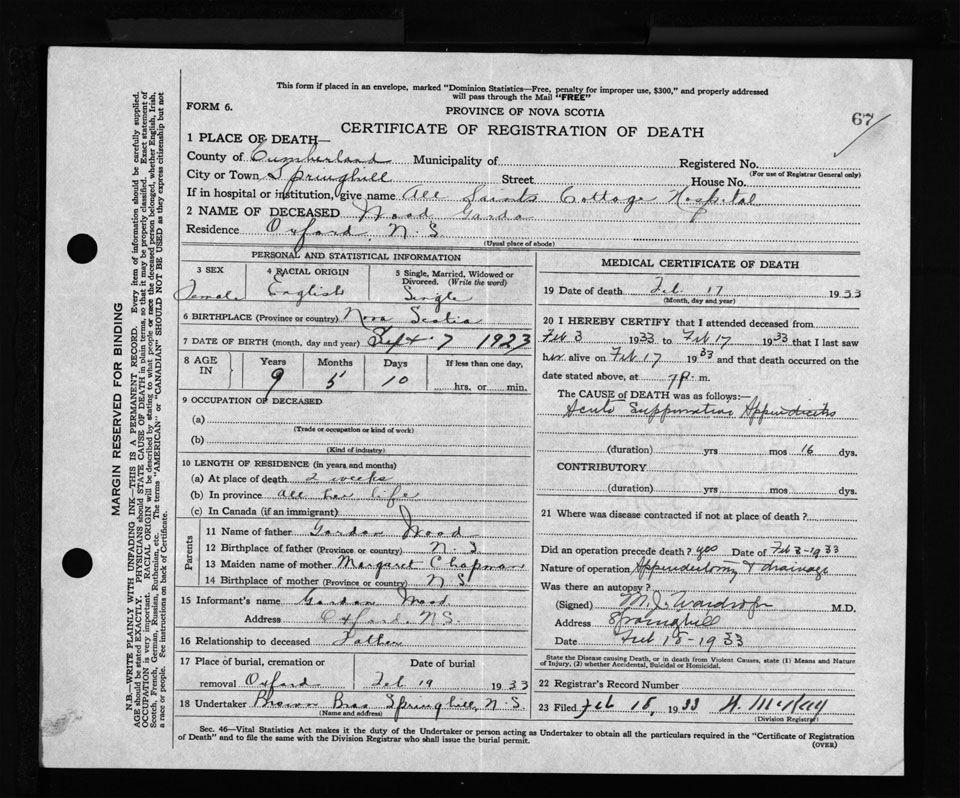 This form if placed in an envelope, marked "Dominion Statistics—Free, penalty for improper use, $300," and properly addressed
will pass through the Mail "FREE"
FORM 6.
PROVINCE OF NOVA SCOTIA
67
CERTIFICATE OF REGISTRATION OF DEATH
1 PLACE OF DEATH—
County of Cumberland Municipality of Registered No.
(For use of Registrar General only)
City or Town Springhill Street House No.
If in hospital or institution, give name All Saints Cottage Hospital
2 NAME OF DECEASED Wood
Residence Oxford, N. S.
(Usual place of abode)
PERSONAL AND STATISTICAL INFORMATION
3 SEX 4 RACIAL ORIGIN 5 Single, Married, Widowed or Divorced. (Write the word)
Female English Single
6 BIRTHPLACE (Province or country) Nova Scotia
7 DATE OF BIRTH (month, day and year) Sept 7 1923
8 AGE IN Years Months Days If less than one day,
9 5 10 hrs. or min.
9 OCCUPATION OF DECEASED
(a)
(Trade or occupation or kind of work)
(b)
(Kind of industry)
10 LENGTH OF RESIDENCE (in years and months)
(a) At place of death 2 weeks
(b) In province all her life
(c) In Canada (if an immigrant)
Parents
11 Name of father Gordon Wood
12 Birthplace of father (Province or country) N. S
13 Maiden name of mother Margaret Chapman
14 Birthplace of mother (Province or country) N S
15 Informant's name Gordon Wood
Address Oxford, N.S.
16 Relationship to deceased Father
17 Place of burial, cremation or Date of burial
removal Oxford Feb 19 1933
18 Undertaker Brown Bros Springhill, N. S.
(Name and address)
MEDICAL CERTIFICATE OF DEATH
19 Date of death Feb. 17 1933
(Month, day and year)
20 I HEREBY CERTIFY that I attended deceased from
Feb 3 1933 to Feb 17 1933 that I last saw
her alive on Feb 17 1933 and that death occurred on
date stated above, at 7 P. m.
The CAUSE of DEATH was as follows:—
Acute Suppurative Appendicitis
(duration) yrs mos 16 dys.
CONTRIBUTORY
(duration) yrs mos dys.
21 Where was disease contracted if not at place of death?
Did an operation precede death? yes Date of Feb 3-1933
Nature of operation Appendectomy & drainage
Was there an autopsy?
(Signed) M. J. Wardrope M.D.
Address Springhill
Date Feb 18-1933
State the Disease causing Death, or in death from Violent Causes, state (1) Means and Nature
of Injury, (2) whether Accidental, Suicidal or Homicidal.
22 Registrar's Record Number
23 Filed Feb 18, 1933 H. McKay
(Division Registrar)
Sec. 46—Vital Statistics Act makes it the duty of the Undertaker or person acting as Undertaker to obtain all the particulars required in the "Certificate of Registration
of Death" and to file the same with the Division Registrar who shall issue the burial permit.
(OVER)
MARGIN RESERVED FOR BINDING
N.B.—WRITE PLAINLY WITH UNFADING INK—THIS IS A PERMANENT RECORD. Every item of information should be carefully supplied.
AGE should be stated EXACTLY. PHYSICIANS should STATE CAUSE OF DEATH in plain terms, so that it may be properly classified. Exact statement of
OCCUPATION is very important. RACIAL ORIGIN will be described by stating to what people or race the deceased person belonged, whether English, Irish,
Scotch, French, German, Russian, Ruthenian, etc. The terms "AMERICAN" or "CANADIAN" SHOULD NOT BE USED as they express citizenship but not
a race or people. See instructions on back of Certificate.